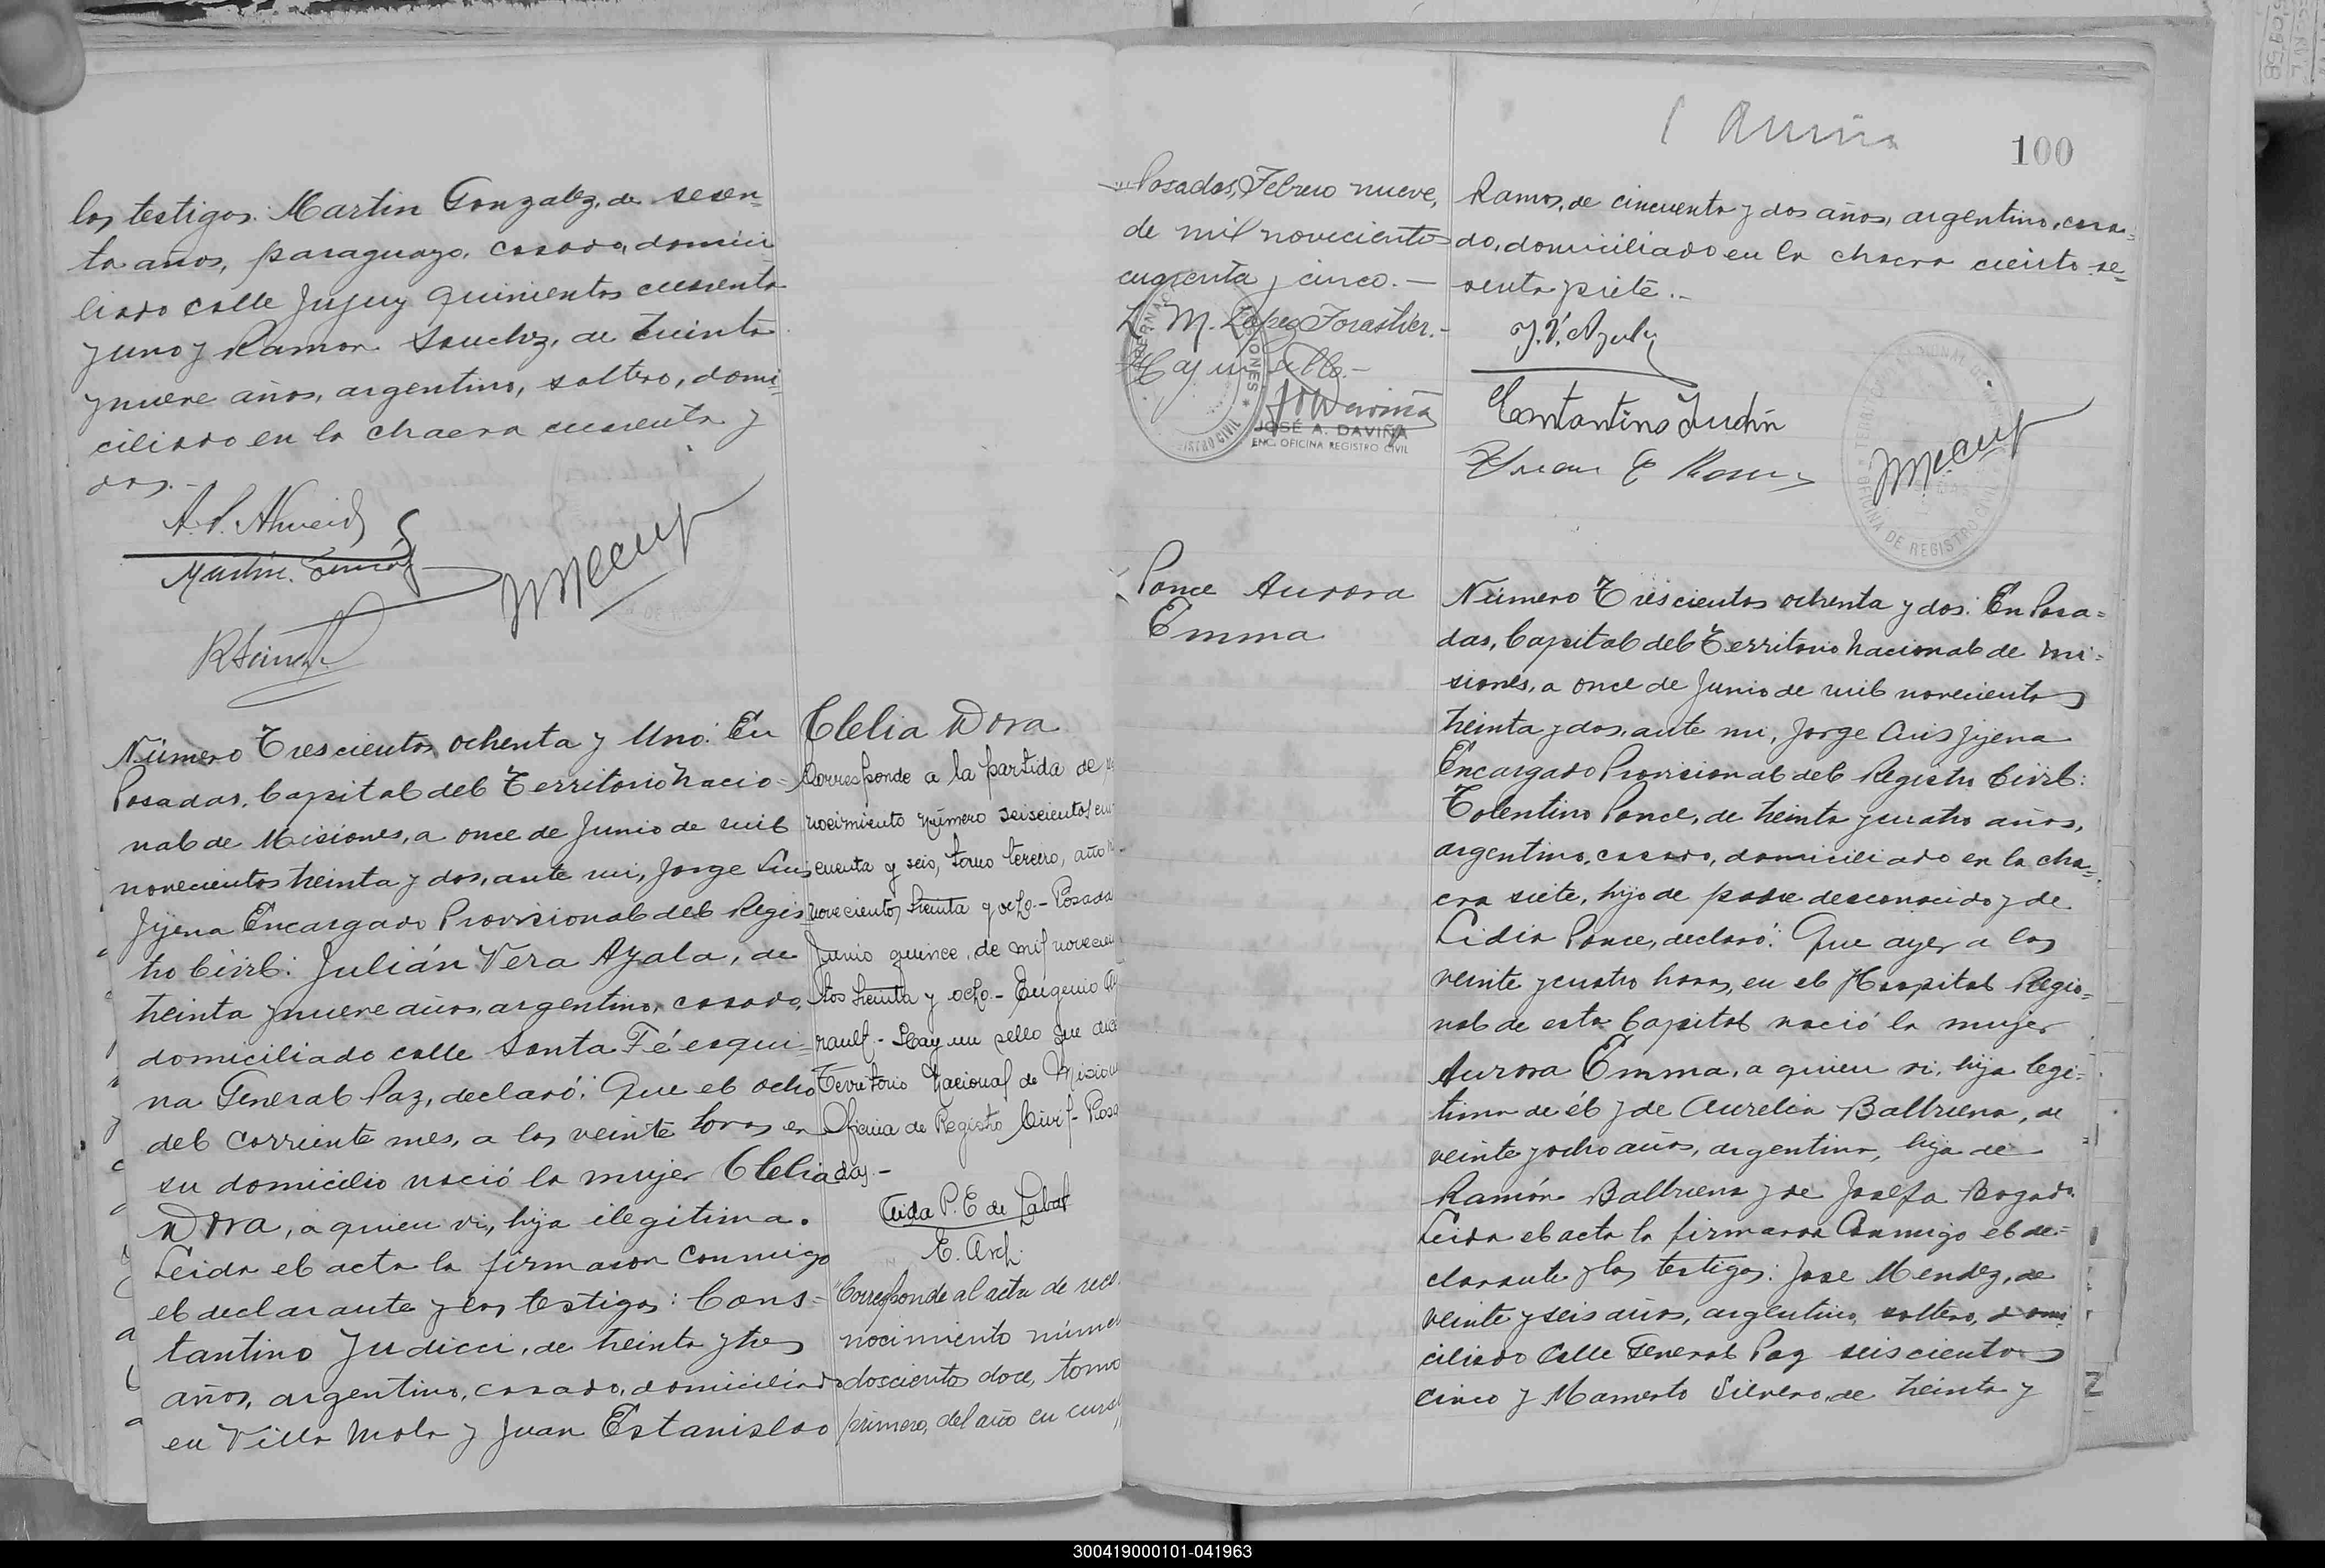 los testigos: Martin Gonzalez, de sesen-
ta años, paraguayo, casado, domici
liado calle Jujuy quinientos cuarenta
y uno y Ramon Sanchez, de treinta
y nueve años, argentino, soltero, domi-
ciliado en la chacra cuarenta y
dos.-
Número Trescientos ochenta y Uno: En
Posadas, Capital del Territorio Nacio-
nal de Misiones, a once de Junio de mil
novecientos treinta y dos, ante mi, Jorge Luis
Jijena Encargado Provisional del Regis
tro Civil: Julián Vera Ayala, de
treinta y nueve años, argentino, casado,
domiciliado calle Santa Fé esqui-
na General Paz, declaró: Que el ocho
del corriente mes, a las veinte horas en
su domicilio nació la mujer Clelia
Dora, a quien vi, hija ilegitima.
Leida el acta la firmaron conmigo
el declarante y los testigos: Cons-
tantino Judicci, de treinta y tres
años, argentino, casado, domiciliado
en Villa Mola y Juan Estanislao
Clelia Dora
Corresponde a la partida de
nocimiento número seiscientos
cuenta y seis, tomo tercero, año
novecientos treinta y ocho.- Posada
Junio quince, de mil novecien
tos treinta y ocho.- Eugenio
rault.- Hay un sello que dice
Territorio Nacional de Mision
Oficina de Registro Civil- Posa
das.-
"Corresponde al acta de reco
nocimiento núme
doscientos doce, tomo
primero, del año en curso"
Posadas, Febrero nueve,
de mil novecientos
cuarenta y cinco.-
L. M. Lopez Forastier.-
Hay un sello.-
JOSÉ A. DAVIÑA
ENC. OFICINA REGISTRO CIVIL
100
Ramos, de cincuenta y dos años, argentino, casa-
do, domiciliado en la chacra ciento se-
senta y siete.-
Constantino Judici
Juan E Ramos
Ponce Aurora
Emma
Número Trescientos ochenta y dos: En Posa-
das, Capital del Territorio Nacional de Mi-
siones, a once de Junio de mil novecientos
treinta y dos, ante mi, Jorge Luis Jijena
Encargado Provisional del Registro Civil:
Tolentino Ponce, de treinta y cuatro años,
argentino, casado, domiciliado en la cha-
cra siete, hijo de padre desconocido y de
Lidia Ponce, declaró: Que ayer a las
veinte y cuatro horas, en el Hospital Regio-
nal de esta Capital nació la mujer
Aurora Emma, a quien vi, hija legi-
tima de él y de Aurelia Balbuena, de
veinte y ocho años, argentina, hija de
Ramón Balbuena y de Josefa Bogado.
Leida el acta la firmaron Conmigo el de-
clarante y los testigos: Jose Mendez, de
veinte y seis años, argentino, soltero, domi
ciliado Calle General Paz seiscientos
cinco y Mamerto Silvero, de treinta y
300419000101-041963